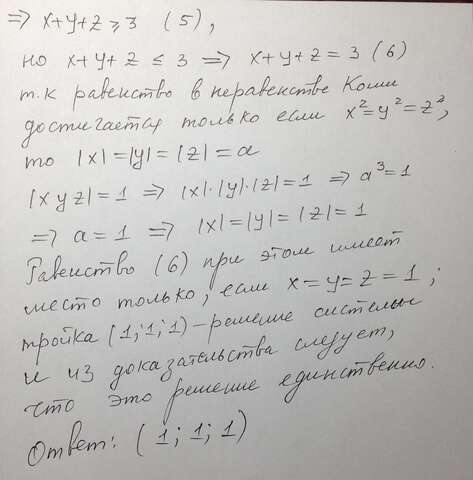 => x+y+z ≥ 3 (5),
но x+y+z ≤ 3 => x+y+z = 3 (6)
т.к равенство в неравенстве Коши
достигается только если x²=y²=z²,
то |x|=|y|=|z|=a
|xyz|=1 => |x|·|y|·|z|=1 => a³=1
=> a=1 => |x|=|y|=|z|=1
Равенство (6) при этом имеет
место только, если x=y=z=1;
тройка (1;1;1)-решение системы
и из доказательства следует,
что это решение единственно.
Ответ: (1; 1; 1)